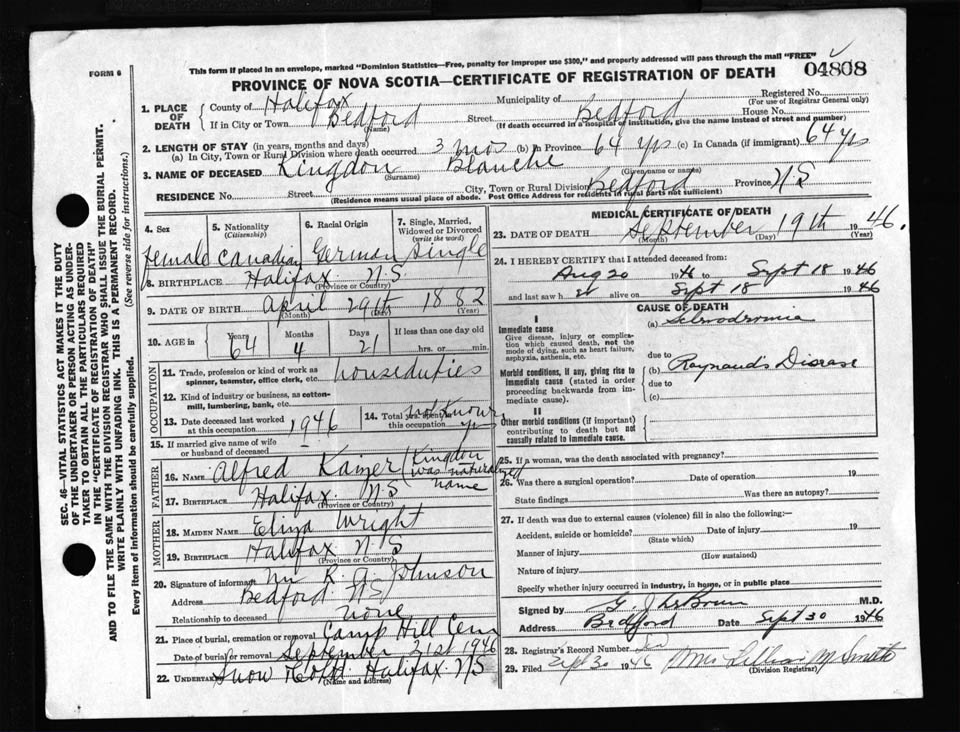 This form if placed in an envelope, marked "Dominion Statistics—Free, penalty for improper use $300," and properly addressed will pass through the mail "FREE"
FORM 6
04808
PROVINCE OF NOVA SCOTIA—CERTIFICATE OF REGISTRATION OF DEATH
1. PLACE OF DEATH
County of Halifax Municipality of Bedford Registered No.
(For use of Registrar General only)
If in City or Town Bedford Street House No.
(Name) (If death occurred in a hospital or institution, give the name instead of street and number)
2. LENGTH OF STAY (in years, months and days)
(a) In City, Town or Rural Division where death occurred 3 mos (b) in Province 64 yrs (c) In Canada (if immigrant) 64 yrs
3. NAME OF DECEASED Kingdon Blanche
(Surname) (Given name or names)
RESIDENCE No. Street City, Town or Rural Division Bedford Province N.S
(Residence means usual place of abode. Post Office Address for residents in rural parts not sufficient)
4. Sex
5. Nationality (Citizenship)
6. Racial Origin
7. Single, Married, Widowed or Divorced (write the word)
Female Canadian German Single
8. BIRTHPLACE Halifax N.S
(Province or Country)
9. DATE OF BIRTH April 29th 1882
(Month) (Day) (Year)
10. AGE in
Years Months Days If less than one day old
64 4 21 hrs. or min.
OCCUPATION
11. Trade, profession or kind of work as spinner, teamster, office clerk, etc. houseduties
12. Kind of industry or business, as cotton-mill, lumbering, bank, etc.
13. Date deceased last worked at this occupation 1946
14. Total yrs. spent in this occupation not known
15. If married give name of wife or husband of deceased
FATHER
16. NAME Alfred Kamer (Kingdon was naturalized name
17. BIRTHPLACE Halifax N.S
(Province or Country)
MOTHER
18. MAIDEN NAME Eliza Wright
19. BIRTHPLACE Halifax N.S
(Province or Country)
20. Signature of informant Mr R. A. Johnson
Address Bedford N.S
Relationship to deceased none
21. Place of burial, cremation or removal Camp Hill Cem
Date of burial or removal September 21st 1946
22. Undertaker Snow Halifax N.S
(Name and address)
MEDICAL CERTIFICATE OF DEATH
23. DATE OF DEATH September 19th 1946.
(Month) (Day) (Year)
24. I HEREBY CERTIFY that I attended deceased from:
Aug 20 1946 to Sept 18 1946
and last saw her alive on Sept 18 1946
CAUSE OF DEATH
I
Immediate cause
Give disease, injury or complication which caused death, not the mode of dying, such as heart failure, asphyxia, asthenia, etc.
(a) Sclerodermia
due to
Morbid conditions, if any, giving rise to immediate cause (stated in order proceeding backwards from immediate cause).
(b) Raynaud's Disease
due to
(c)
II
Other morbid conditions (if important) contributing to death but not causally related to immediate cause.
25. If a woman, was the death associated with pregnancy?
26. Was there a surgical operation? Date of operation 19
State findings Was there an autopsy?
27. If death was due to external causes (violence) fill in also the following:
Accident, suicide or homicide? Date of injury 19
(State which)
Manner of injury
(How sustained)
Nature of injury
Specify whether injury occurred in industry, in home, or in public place
Signed by M.D.
Address Bedford Date Sept 30 1946
28. Registrar's Record Number
29. Filed Sept 30 1946 Mrs Lillian M Smith
(Division Registrar)
SEC. 46—VITAL STATISTICS ACT MAKES IT THE DUTY
OF THE UNDERTAKER OR PERSON ACTING AS UNDER-
TAKER TO OBTAIN ALL THE PARTICULARS REQUIRED
IN THE "CERTIFICATE OF REGISTRATION OF DEATH"
AND TO FILE THE SAME WITH THE DIVISION REGISTRAR WHO SHALL ISSUE THE BURIAL PERMIT.
WRITE PLAINLY WITH UNFADING INK. THIS IS A PERMANENT RECORD.
Every item of information should be carefully supplied. (See reverse side for instructions.)